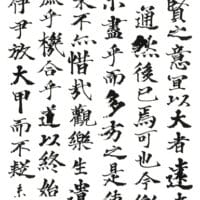 賢之意冝以大者遠
通然後已焉可也今樂
盡乎而多劣之是使
來不亦惜哉觀樂生遺
庶乎機合乎道以終始
伊尹放大甲而不疑